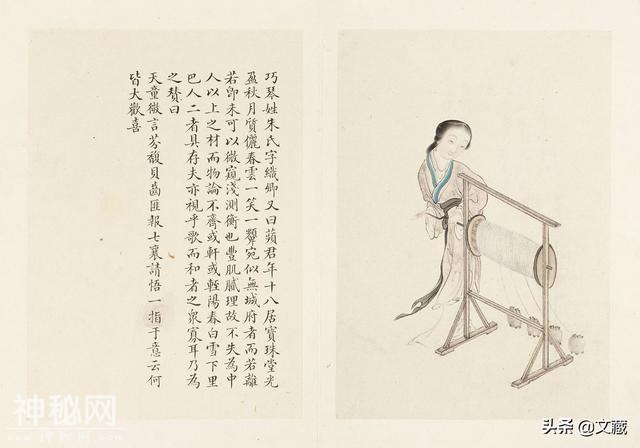 巧琴姓朱氏字織卿又曰蘋君年十八居寶珠堂光
盈秋月質儷春雲一笑一顰宛似無城府者而若離
若卽未可以微窺淺測衡也豐肌膩理故不失為中
人以上之材而物論不齊或軒或輊陽春白雪下里
巴人二者具存夫亦視乎歌而和者之衆寡耳乃為
之贊曰
天童微言芬馥貝齒匪報七襄請悟一指于意云何
皆大歡喜
神秘网
头条 @文藏